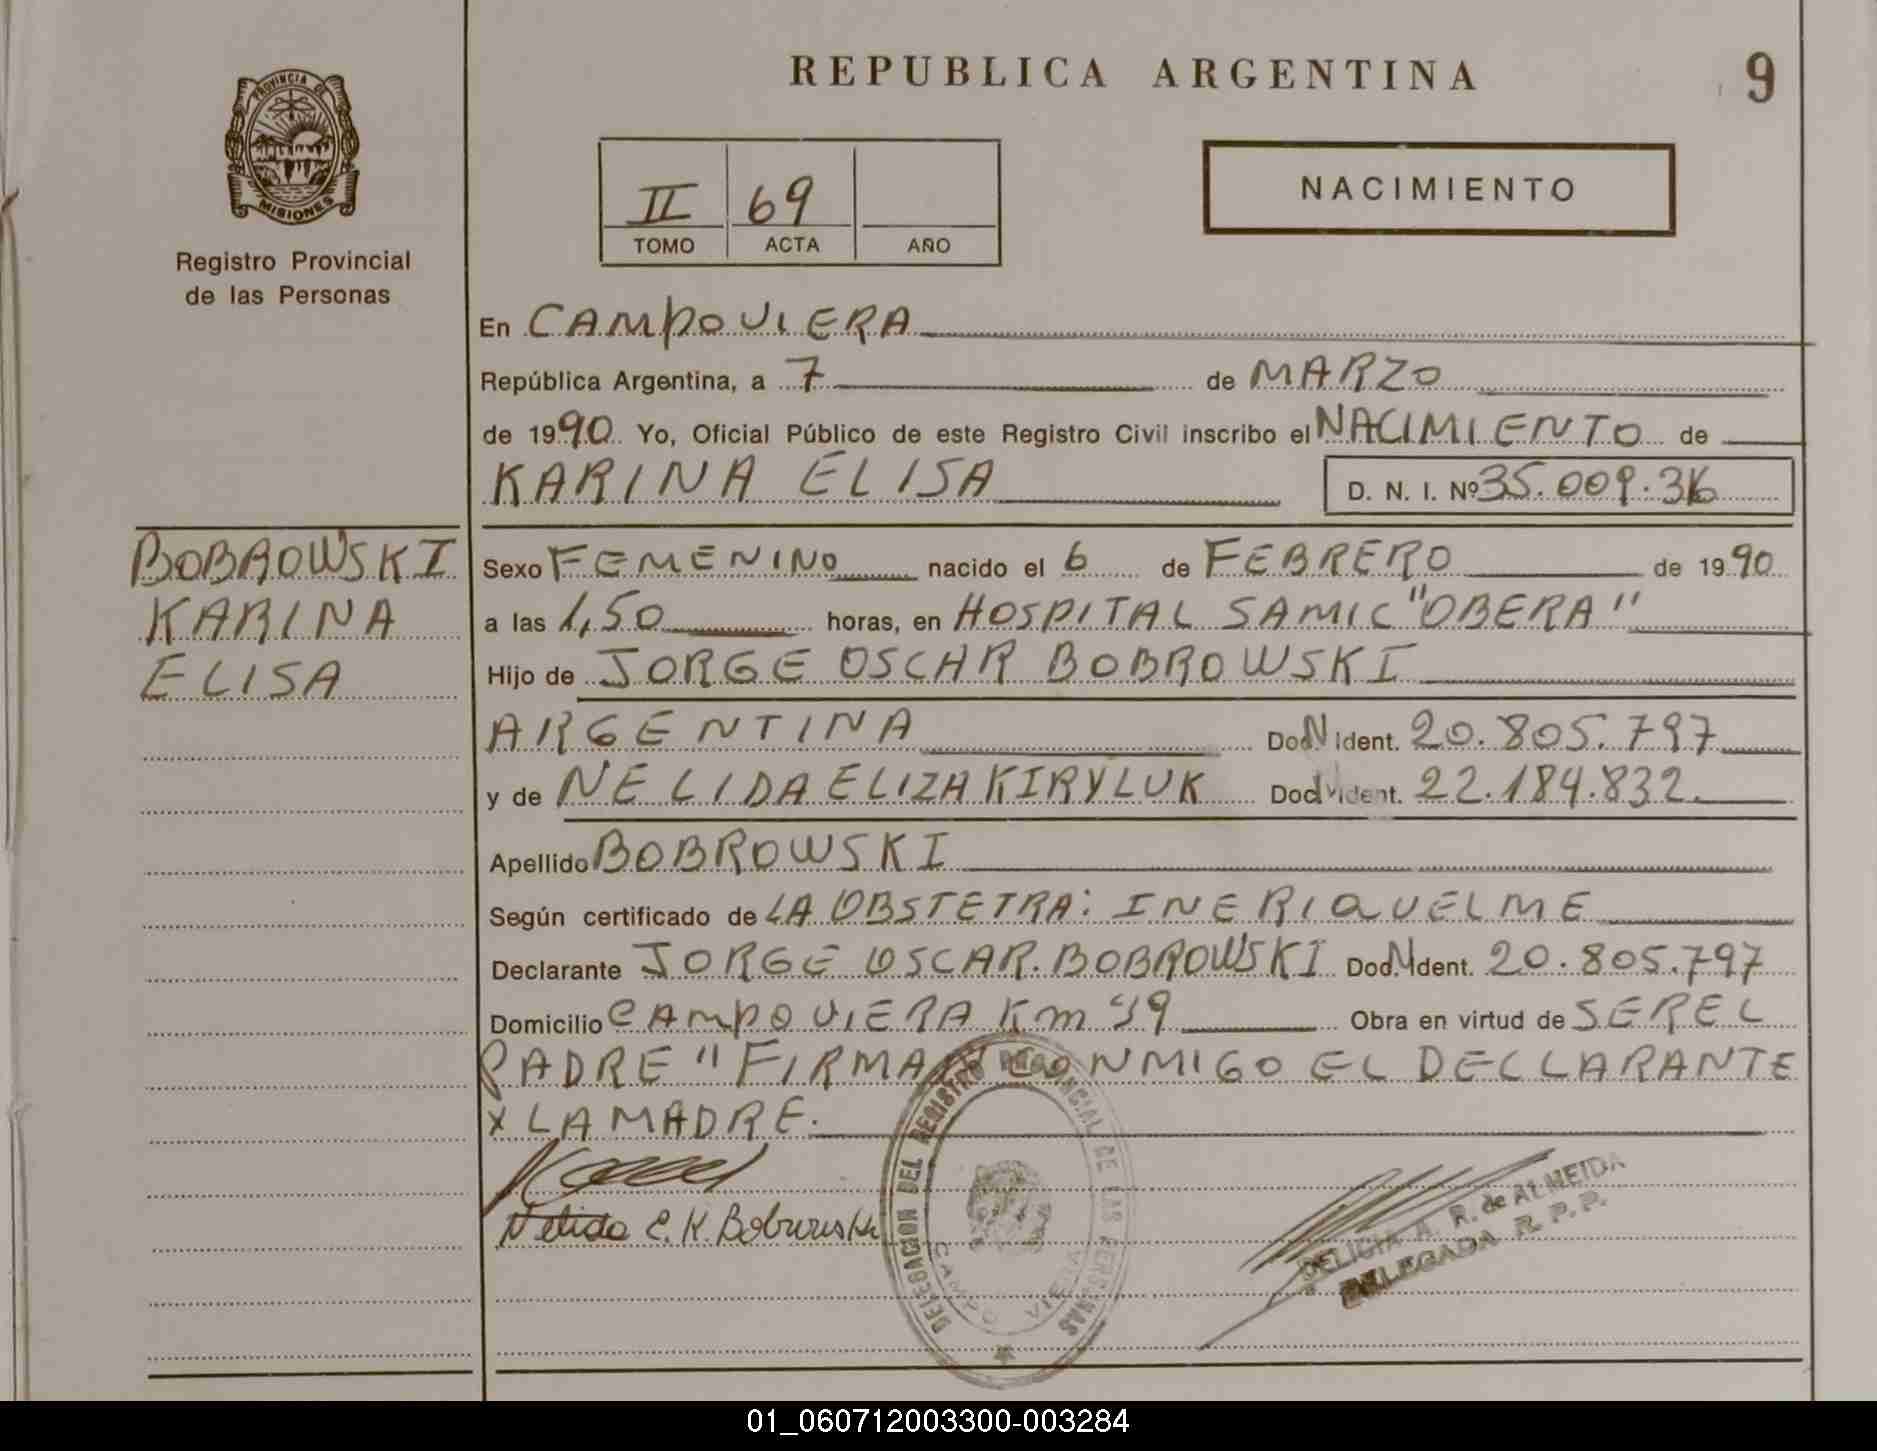 REPUBLICA ARGENTINA
9
PROVINCIA DE
MISIONES
Registro Provincial
de las Personas
II 69
TOMO ACTA AÑO
NACIMIENTO
En CAMPO VIERA
República Argentina, a 7 de MARZO
de 1990 Yo, Oficial Público de este Registro Civil inscribo el NACIMIENTO de
KARINA ELISA D. N. I. Nº 35.009.
BOBROWSKI
KARINA
ELISA
Sexo FEMENINO nacido el 6 de FEBRERO de 1990
a las 1,50 horas, en HOSPITAL SAMIC "OBERA"
Hijo de JORGE OSCAR BOBROWSKI
ARGENTINA Doc. N Ident. 20.805.797
y de NELIDA ELIZA KIRYLUK Doc. Ident. 22.184.832.
Apellido BOBROWSKI
Según certificado de LA OBSTETRA: INE RIQUELME
Declarante JORGE OSCAR BOBROWSKI Doc. N Ident. 20.805.797
Domicilio CAMPO VIERA Km Obra en virtud de SER EL
PADRE "FIRMAN CONMIGO EL DECLARANTE
Y LA MADRE.
Nelida E. K. Bobrowski
DELEGACION DEL REGISTRO PROVINCIAL DE LAS PERSONAS
CAMPO VIERA
DELICIA A. R. de ALMEIDA
DELEGADA R. P. P.
01_060712003300-003284